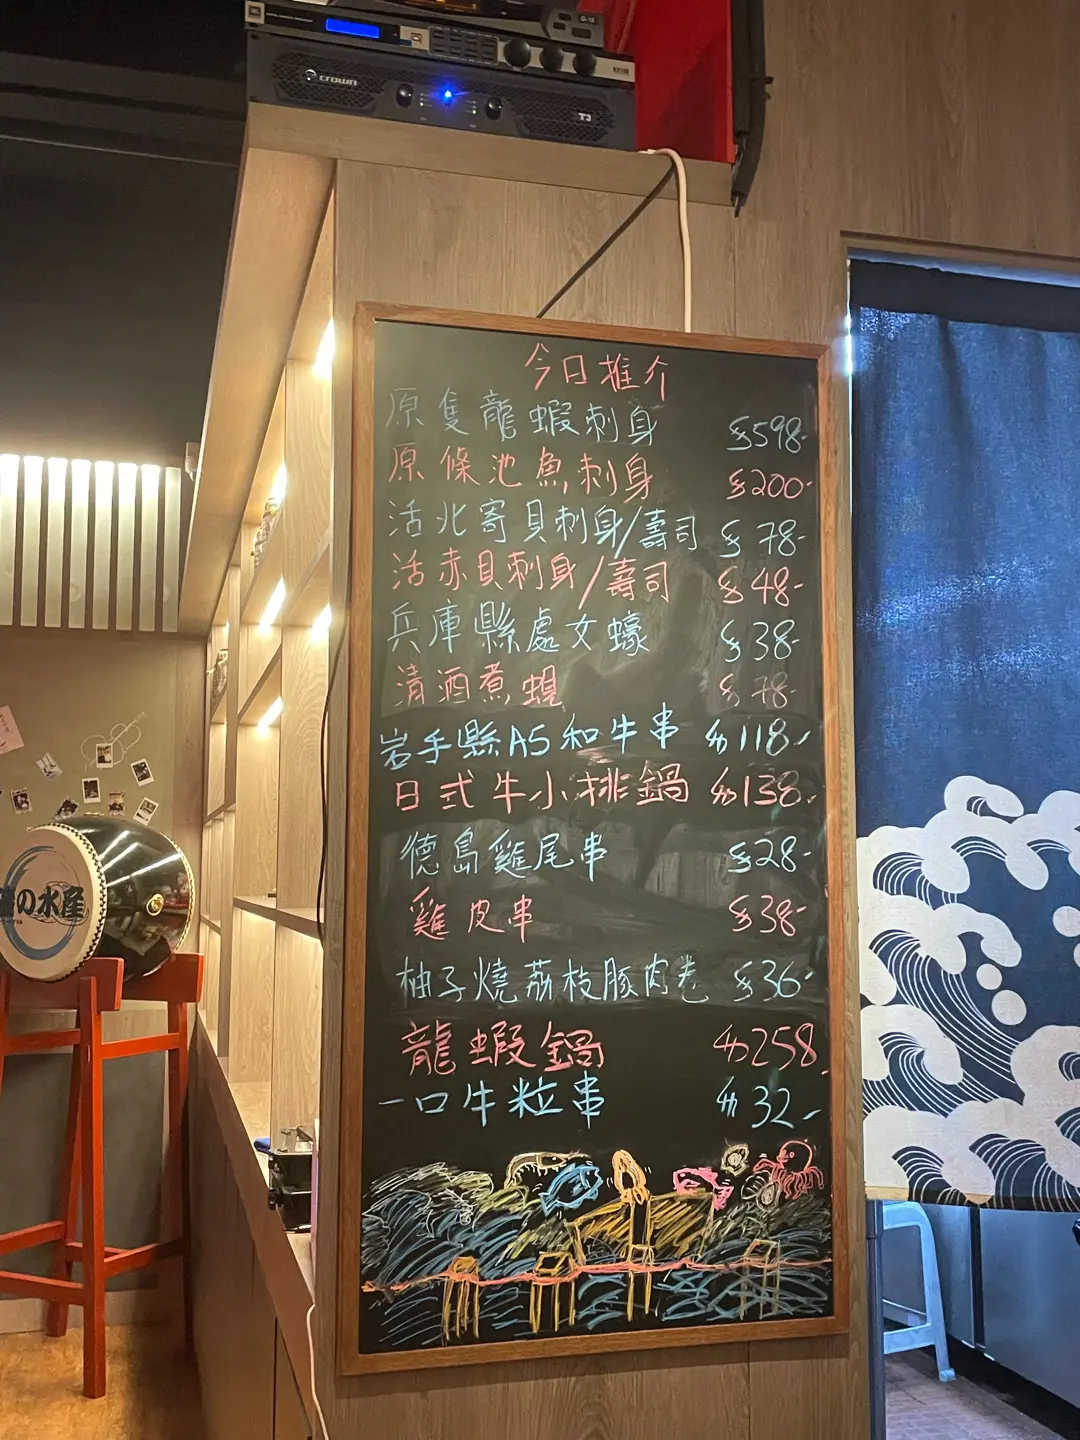 crown
今日推介
原隻龍蝦刺身 $598-
原條池魚刺身 $200-
活北寄貝刺身/壽司 $78-
活赤貝刺身/壽司 $48-
兵庫縣處女蠔 $38-
清酒煮蜆 $78-
岩手縣A5和牛串 $118-
日式牛小排鍋 $138-
德島雞尾串 $28-
雞皮串 $38-
柚子燒荔枝豚肉卷 $36-
龍蝦鍋 $258-
一口牛粒串 $32-
の水産